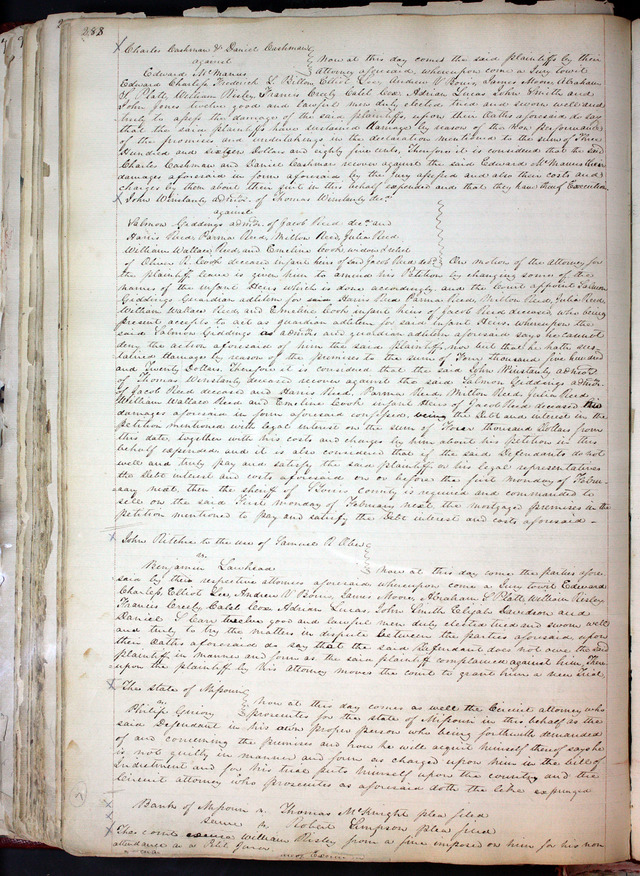 288
Charles Cashman & Daniel Cashman
against Now at this day comes the said plaintiffs by their
Edward McManus attorney aforesaid, whereupon come a Jury towit
Edward Charless, Frederick L. Billon, Elliot Lee, Andrew V Bouis, James Moore, Abraham
S. Platt, William Risley, Francis Creely, Calet Cox, Adrian Lucas, John Smith and
John Jones twelve good and lawful men duly elected tried and sworn well and
truly to assess the damages of the said plaintiffs, upon their Oaths aforesaid do say
that the said plaintiffs have sustained damage by reason of the Non performance
of the promises and undertakings in the declaration mentioned to the sum of Three
Hundred and Dollars and eighty five cents. Therefore it is considered that the said
Charles Cashman and Daniel Cashman recover against the said Edward McManus their
damages aforesaid in form aforesaid by the Jury assessed and also their costs and
charges by them about their suit in this behalf expended and that they have thereof Execution
John Winstanly admtr. of Thomas Winstanly decd.
against
Salmon Giddings admtr. of Jacob Reed decd. and
Harris Reed, Parma Reed, Milton Reed, Julia Reed
William Wallace Reed, and Emeline Cook widow & relict
of Oliver R. Cook deceased infant heirs of said Jacob Reed On motion of the attorney for
the plaintiff leave is given him to amend his Petition by changing some of the
names of the infant Heirs which is done accordingly, and the Court appoint Salmon
Giddings Guardian adlitem for Harris Reed, Parma Reed, Milton Reed, Julia Reed,
William Wallace Reed and Emeline Cook infant heirs of Jacob Reed deceased, who being
present accepts to act as guardian adlitem for said infant Heirs whereupon the
said Salmon Giddings as admtr. and guardian adlitem aforesaid says he cannot
deny the action aforesaid of him the said plaintiff, nor but that he hath sus-
tained damages by reason of the premises to the sum of Four thousand five hundred
and Twenty Dollars. Therefore it is considered that the said John Winstanly admtr.
of Thomas Winstanly deceased recover against the said Salmon Giddings admtr.
of Jacob Reed deceased and Harris Reed, Parma Reed, Milton Reed, Julia Reed
William Wallace Reed and Emeline Cook infant Heirs of Jacob Reed deceased his
damages aforesaid in form aforesaid confessed, being the Debt and interest in the
petition mentioned with legal interest on the sum of thousand Dollars from
this date, together with his costs and charges by him about his petition in this
behalf expended and it is also considered that if the said Defendants do not
well and truly pay and satisfy the said plaintiff or his legal representatives
the Debt interest and costs aforesaid on or before the first monday of Febru-
ary next, then the sheriff of county is required and commanded to
sell on the said First monday of February next the mortgaged premises in the
petition mentioned to pay and satisfy the Debt interest and costs aforesaid -
John Ritchie to the use of Samuel R
vs.
Benjamin Lawhead Now at this day come the parties afore-
said by their respective attornies aforesaid whereupon come a Jury towit Edward
Charless, Elliot Lee, Andrew V Bouis, James Moore, Abraham S. Platt, William Risley,
Francis Creely, Calet Cox, Adrian Lucas, John Smith, Elijah Davidson and
Daniel S. Carr twelve good and lawful men duly elected tried and sworn well
and truly to try the matters in dispute between the parties aforesaid upon
their Oaths aforesaid do say that the said Defendant does not owe the said
plaintiff in manner and form as the said plaintiff complained against him, There-
upon the plaintiff by his Attorney moves the court to grant him a new trial
The State of Missouri
vs. Now at this day comes as well the Circuit attorney who
Philip Guiory prosecutes for the state of Missouri in this behalf as the
said Defendant in his own proper person who being forthwith demanded
of and concerning the premises and how he will acquit himself thereof says he
is not guilty in manner and form as charged upon him in the bill of
Indictment and for his trial puts himself upon the country and the
Circuit attorney who prosecutes as aforesaid doth the like expunged
Bank of Missouri vs. Thomas McKnight plea filed
Same vs. Robert Simpson plea filed
The court excuse William Risley from a fine imposed on him for his non
attendance as a Petit Juror